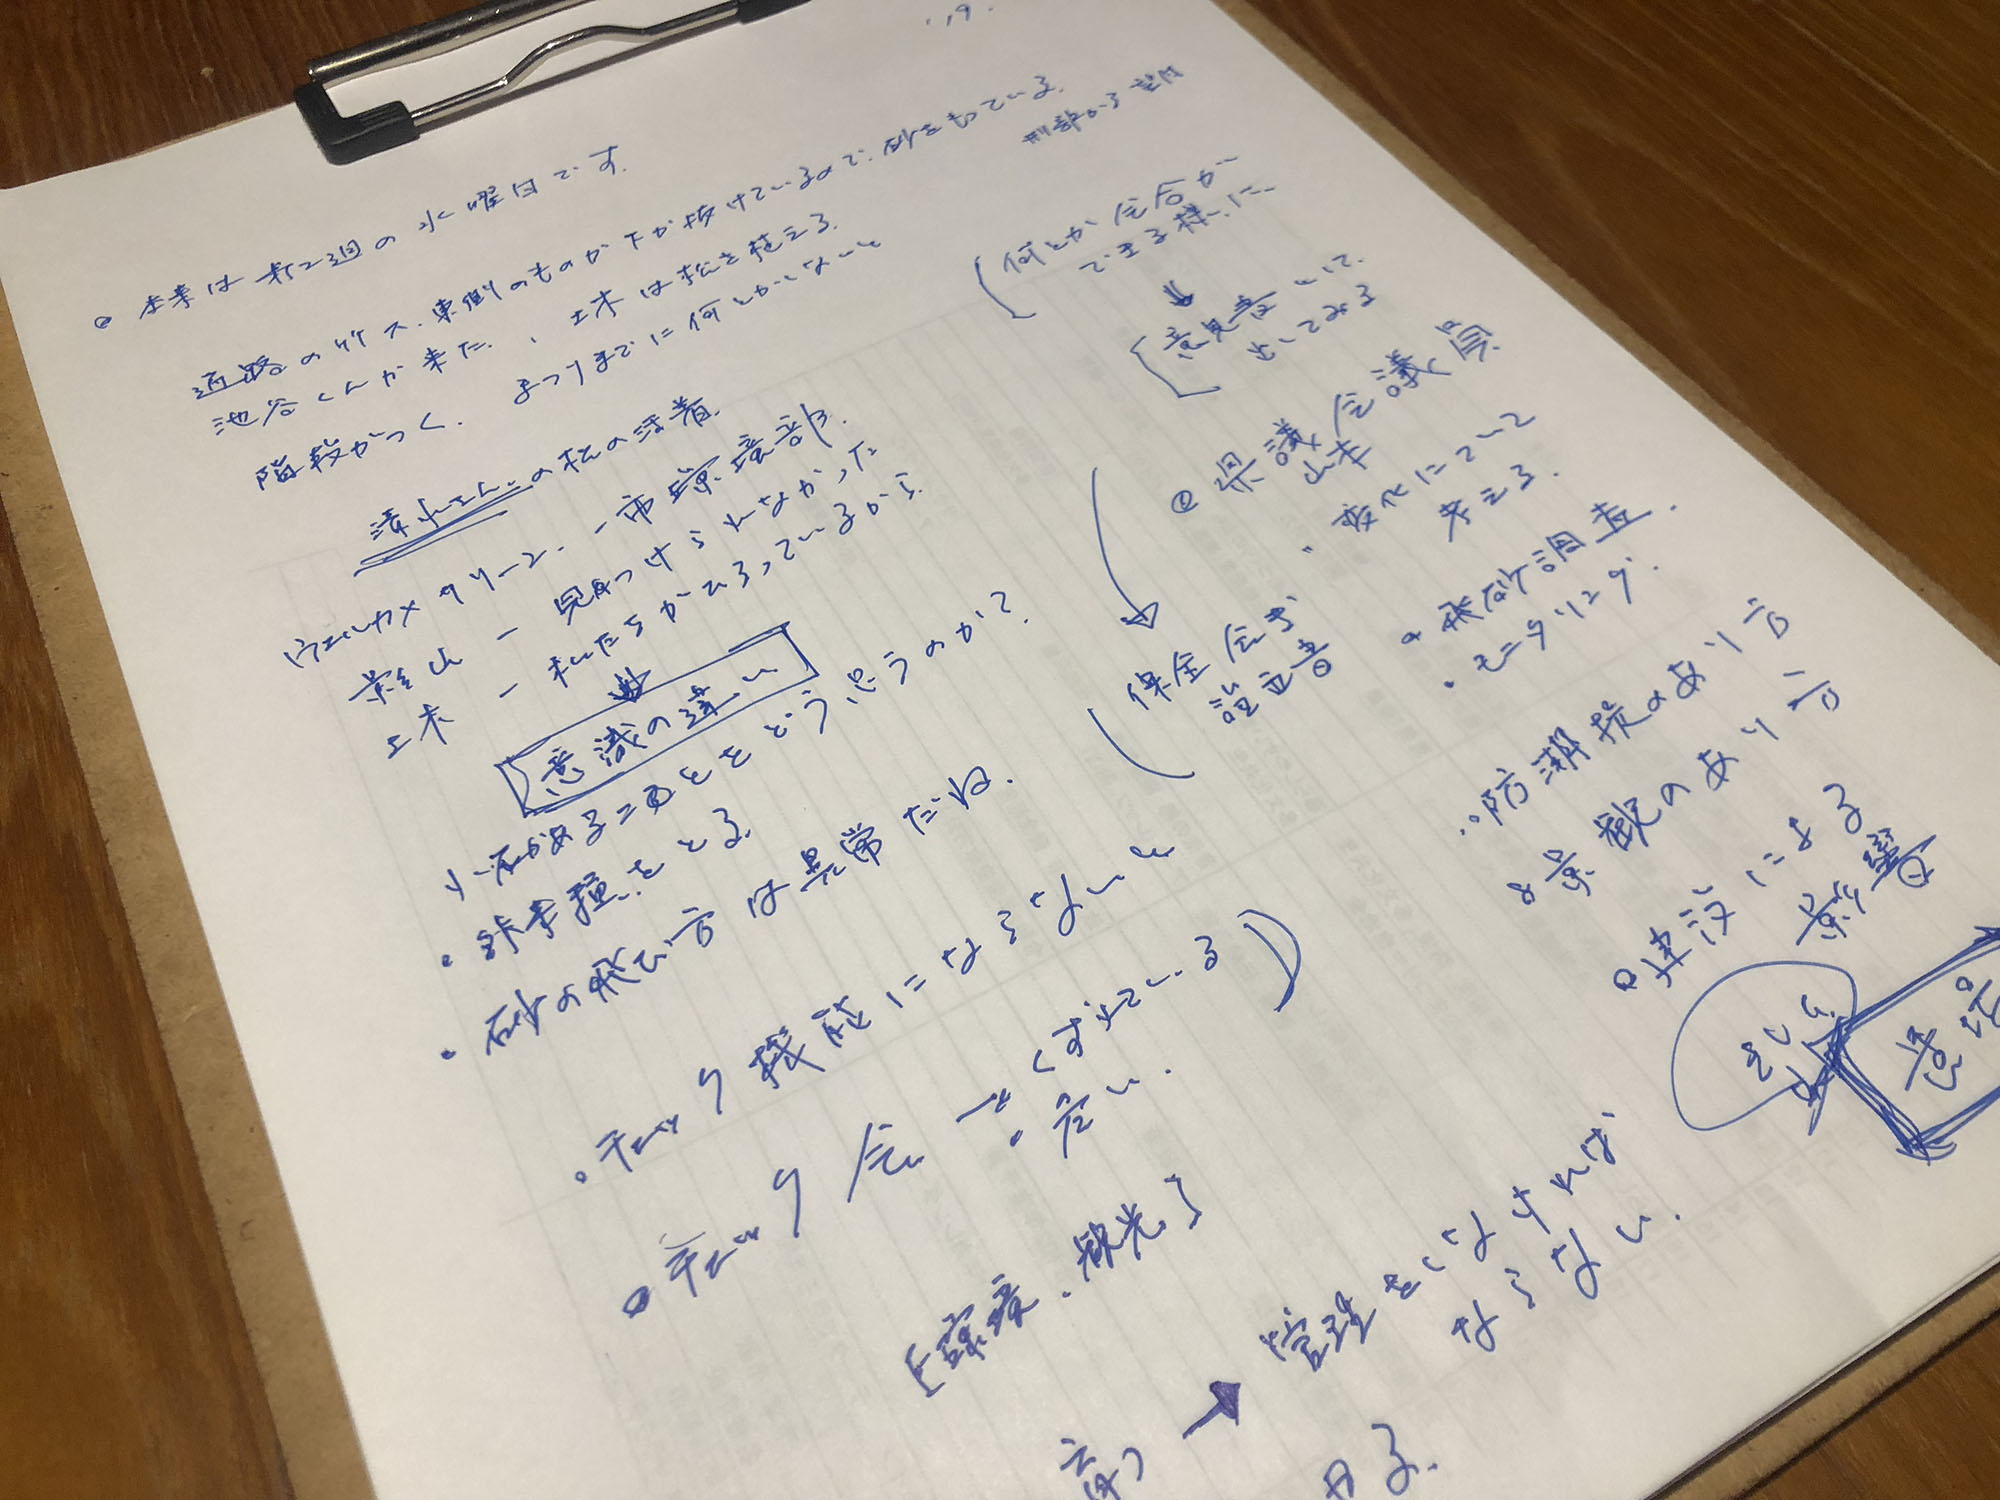 '19.
本来は第2週の水曜日です。
通路の竹ス、東側のものが下が抜けているので、砂をもっている。
池谷くんが来た、土木は松を植える
階段がつく。まつりまでに何とかしないと
清水さんの松の活着
ウェルカメクリーン、一市環境部。
影山 ー 見つけられなかった
土木 ー 私たちがひろっているから
意識の違い
小石があることをどう思うのか?
・鉄車種をとる
・砂の飛び方は異常だね。
・チェック機能にならない
チェック会 ー くずれている
・危い。
[環境、観光]
→ 管理をしなければ
ならない。
刑部から
何とか会合が
できる様に
↓
意見書として
出してみる
県議会議員
山本
・変化について
考える。
保全会が
設立
・飛砂調査.
・モニタリング.
防潮堤のあり方
景観のあり方
建設による
影響